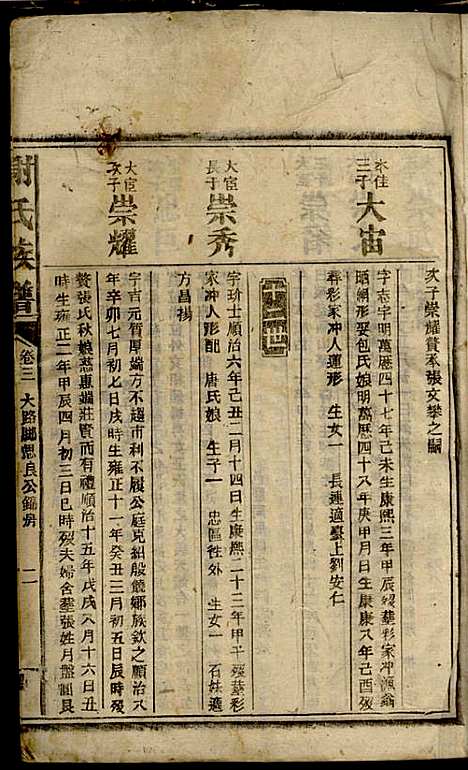 次子崇耀贅本張文攀之嗣
永佳
三子
大宙
字志宇明萬曆四十七年己未生康熙三年甲辰歿葬彩家冲漁翁
晒網形娶包氏娘明萬曆四十八年庚申月日生康熙八年己酉歿
葬彩家冲人蓮形 生女一 長連適臺上劉安仁
大宦
長子
崇秀
字玠士順治六年己丑二月十四日生康熙二十三年甲子歿葬彩
家冲人形配 唐氏娘 生子一 忠區徃外 生女一 石妹適
方昌揚
大宦
次子
崇耀
字吉元質厚端方不趨市利不履公庭克紹殷饒鄉族欽之順治八
年辛卯七月初七日戌時生雍正十一年癸丑三月初五日辰時歿
贅張氏秋娘慈惠端莊貴而有禮順治十五年戊戌八月十六日丑
時生雍正二年甲辰四月初三日巳時歿夫婦合葬張姓月盤
謝氏族譜
卷三
大路
良公
房
二